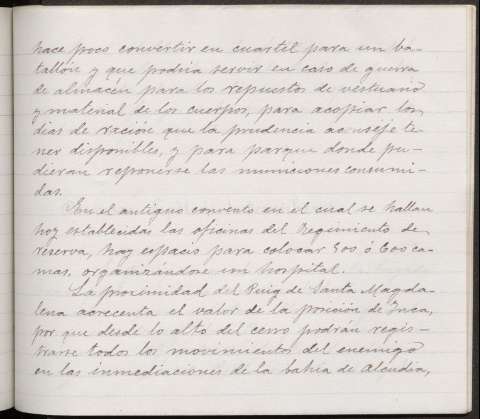 hace poco convertir en cuartel para un ba-
tallón y que podría servir en caso de guerra
de almacén para los repuestos de vestuario
y material de los cuerpos, para acopiar los
dias de ración que la prudencia aconseje te-
ner disponibles, y para parque donde pu-
dieran reponerse las municiones consumi-
das.
En el antiguo convento en el cual se hallan
hoy establecidas las oficinas del Regimiento de
reserva, hay espacio para colocar 500 ó 600 ca-
mas, organizándose un hospital.
La proximidad del Puig de Santa Magda-
lena acrecenta el valor de la posición de Inca,
por que desde lo alto del cerro podrán regis-
trarse todos los movimientos del enemigo
en las inmediaciones de la bahia de Alcudia,